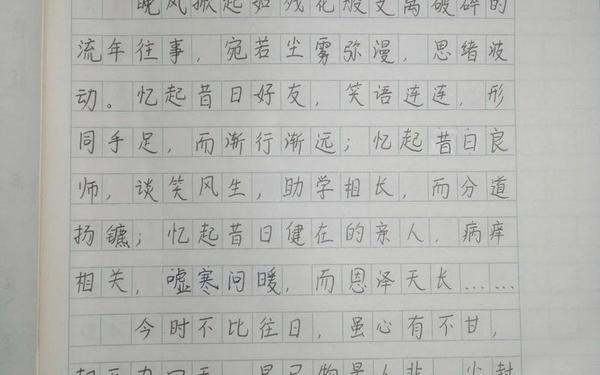 晚风掀起如残花般支离破碎的
流年往事，宛若尘雾弥漫，思绪波
动。忆起昔日好友，笑语连连，形
同手足，而渐行渐远；忆起昔日良
师，谈笑风生，助学相长，而分道
扬镳；忆起昔日健在的亲人，病痒
相关，嘘寒问暖，而恩泽天长……
今时不比往日，虽心有不甘，